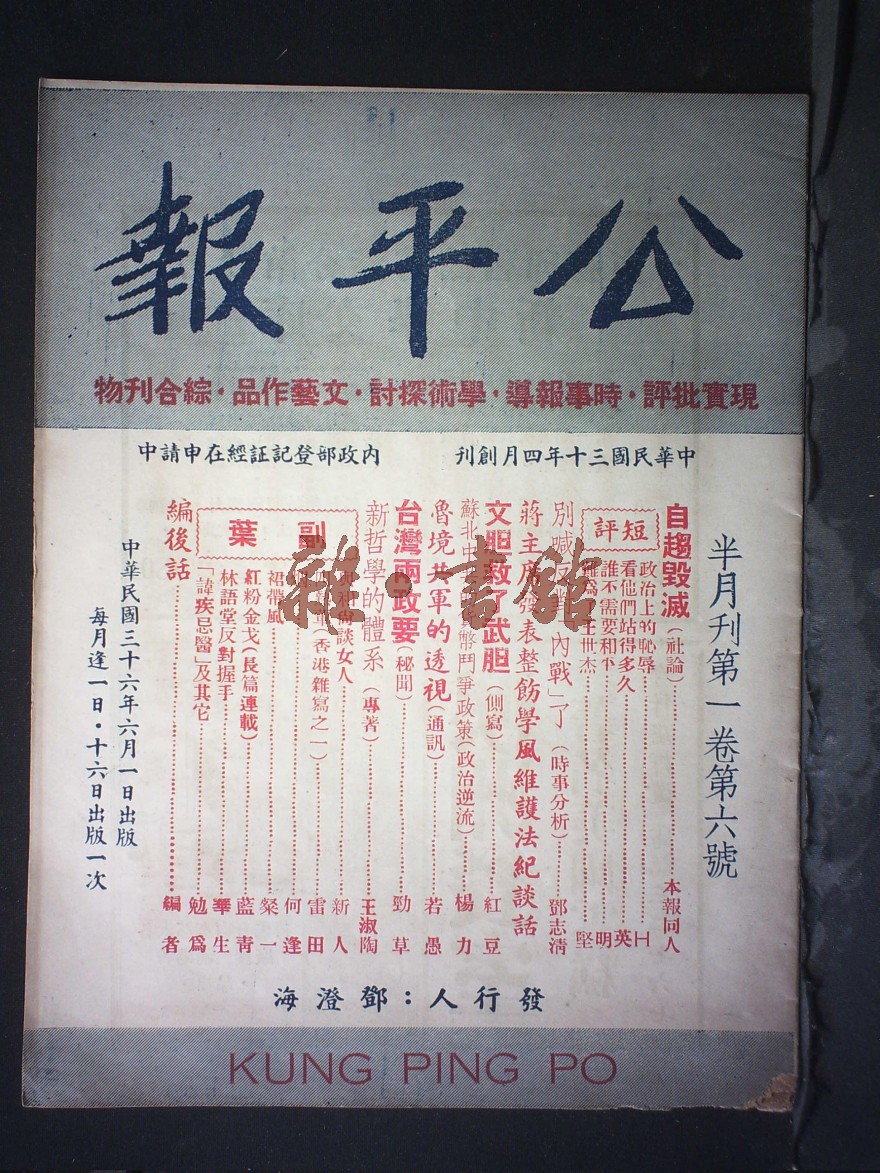 公平報
現實批評·時事報導·學術探討·文藝作品·綜合刊物
中華民國三十年四月創刊
內政部登記証經在申請中
半月刊第一卷第六號
自趨毀滅(社論)本報同人
短評
政治上的恥辱
看他們站得多久 英
誰不需要和平 明
王世杰 堅
別喊 內戰」了(時事分析)鄧志清
蔣主席發表整飭學風維護法紀談話
文胆救了武胆(側寫)紅豆
蘇北中 幣鬥爭政策(政治逆流)楊力
魯境共軍的透視(通訊)若愚
台灣兩政要(秘聞)勁草
新哲學的體系(專著)王淑陶
副葉
談女人 新人
(香港雜寫之一)雷田
裙帶風 何逢
紅粉金戈(長篇連載)燊一
林語堂反對握手 藍青
「諱疾忌醫」及其它 華生
勉為
編後話 編者
中華民國三十六年六月一日出版
每月逢一日·十六日出版一次
發行人:鄧澄海
KUNG PING PO
雜·書館